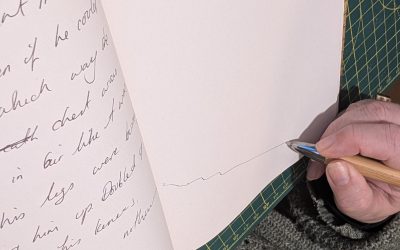 nt h
n if he could
which way b
chest was
in air like I w
his legs were bu
him up. Doubled
his knees,
nothin